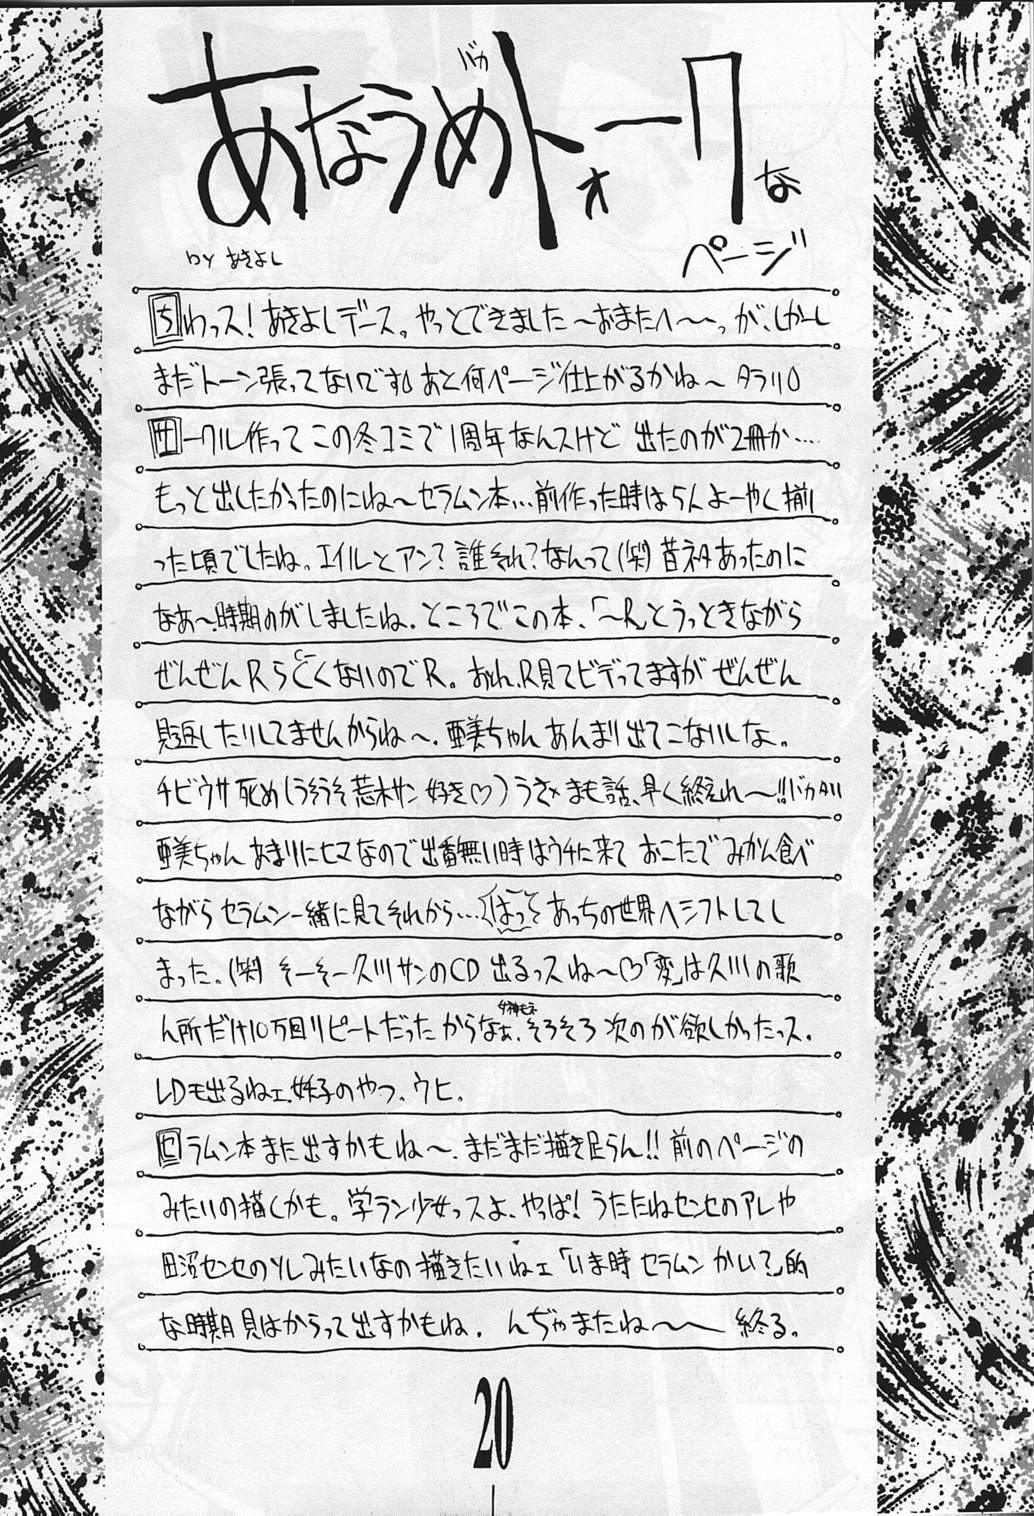 バカ
あなうめトォークな
ページ
by あきよし
ちわっス!あきよしデース。やっとできました〜おまたへ〜〜っが、しかーし
まだトーン張ってないですあと何ページ仕上がるかね〜タラリ
サークル作ってこの冬コミで1周年なんスけど 出たのが2冊か…
もっと出したかったのにね〜セラムン本…前作った時は5人よーやく揃
った頃でしたね。エイルとアン?誰それ?なんって(笑)昔ネタあったのに
なあ〜、時期のがしましたね、ところでこの本、「〜R」とうっときながら
ぜんぜんRらしくないのでR。おれ、R見てビデってますがぜんぜん
見返したりしてませんからね〜、亜美ちゃんあんまり出てこないしなー。
チビウサ死め(うそうそ荒木サン好き♡)うさ×まも話、早く終えれ〜!!バカタリ
亜美ちゃんあまりにヒマなので出番無い時はウチに来ておこたでみかん食べ
ながらセラムン一緒に見てそれから…はっそ あっちの世界へシフトしてし
まった。(笑)そーそー久川サンのCD出るっスね〜♡「変」は久川の歌
ん所だけ10万回リピートだったからなぁ、そろそろ次のが欲しかったっス。
LDも出るねェ、妖子のやつ、ウヒ。
セラムン本また出すかもね〜、まだまだ描き足らん!!前のページの
みたいの描くかも。学ラン少女っスよ、やっぱ!うたたねセンセのアレや
田沼センセのソレみたいなの描きたいねェ「いま時セラムンかい?」的
な時期見はからって出すかもね、んぢゃまたね〜〜 終る。
20